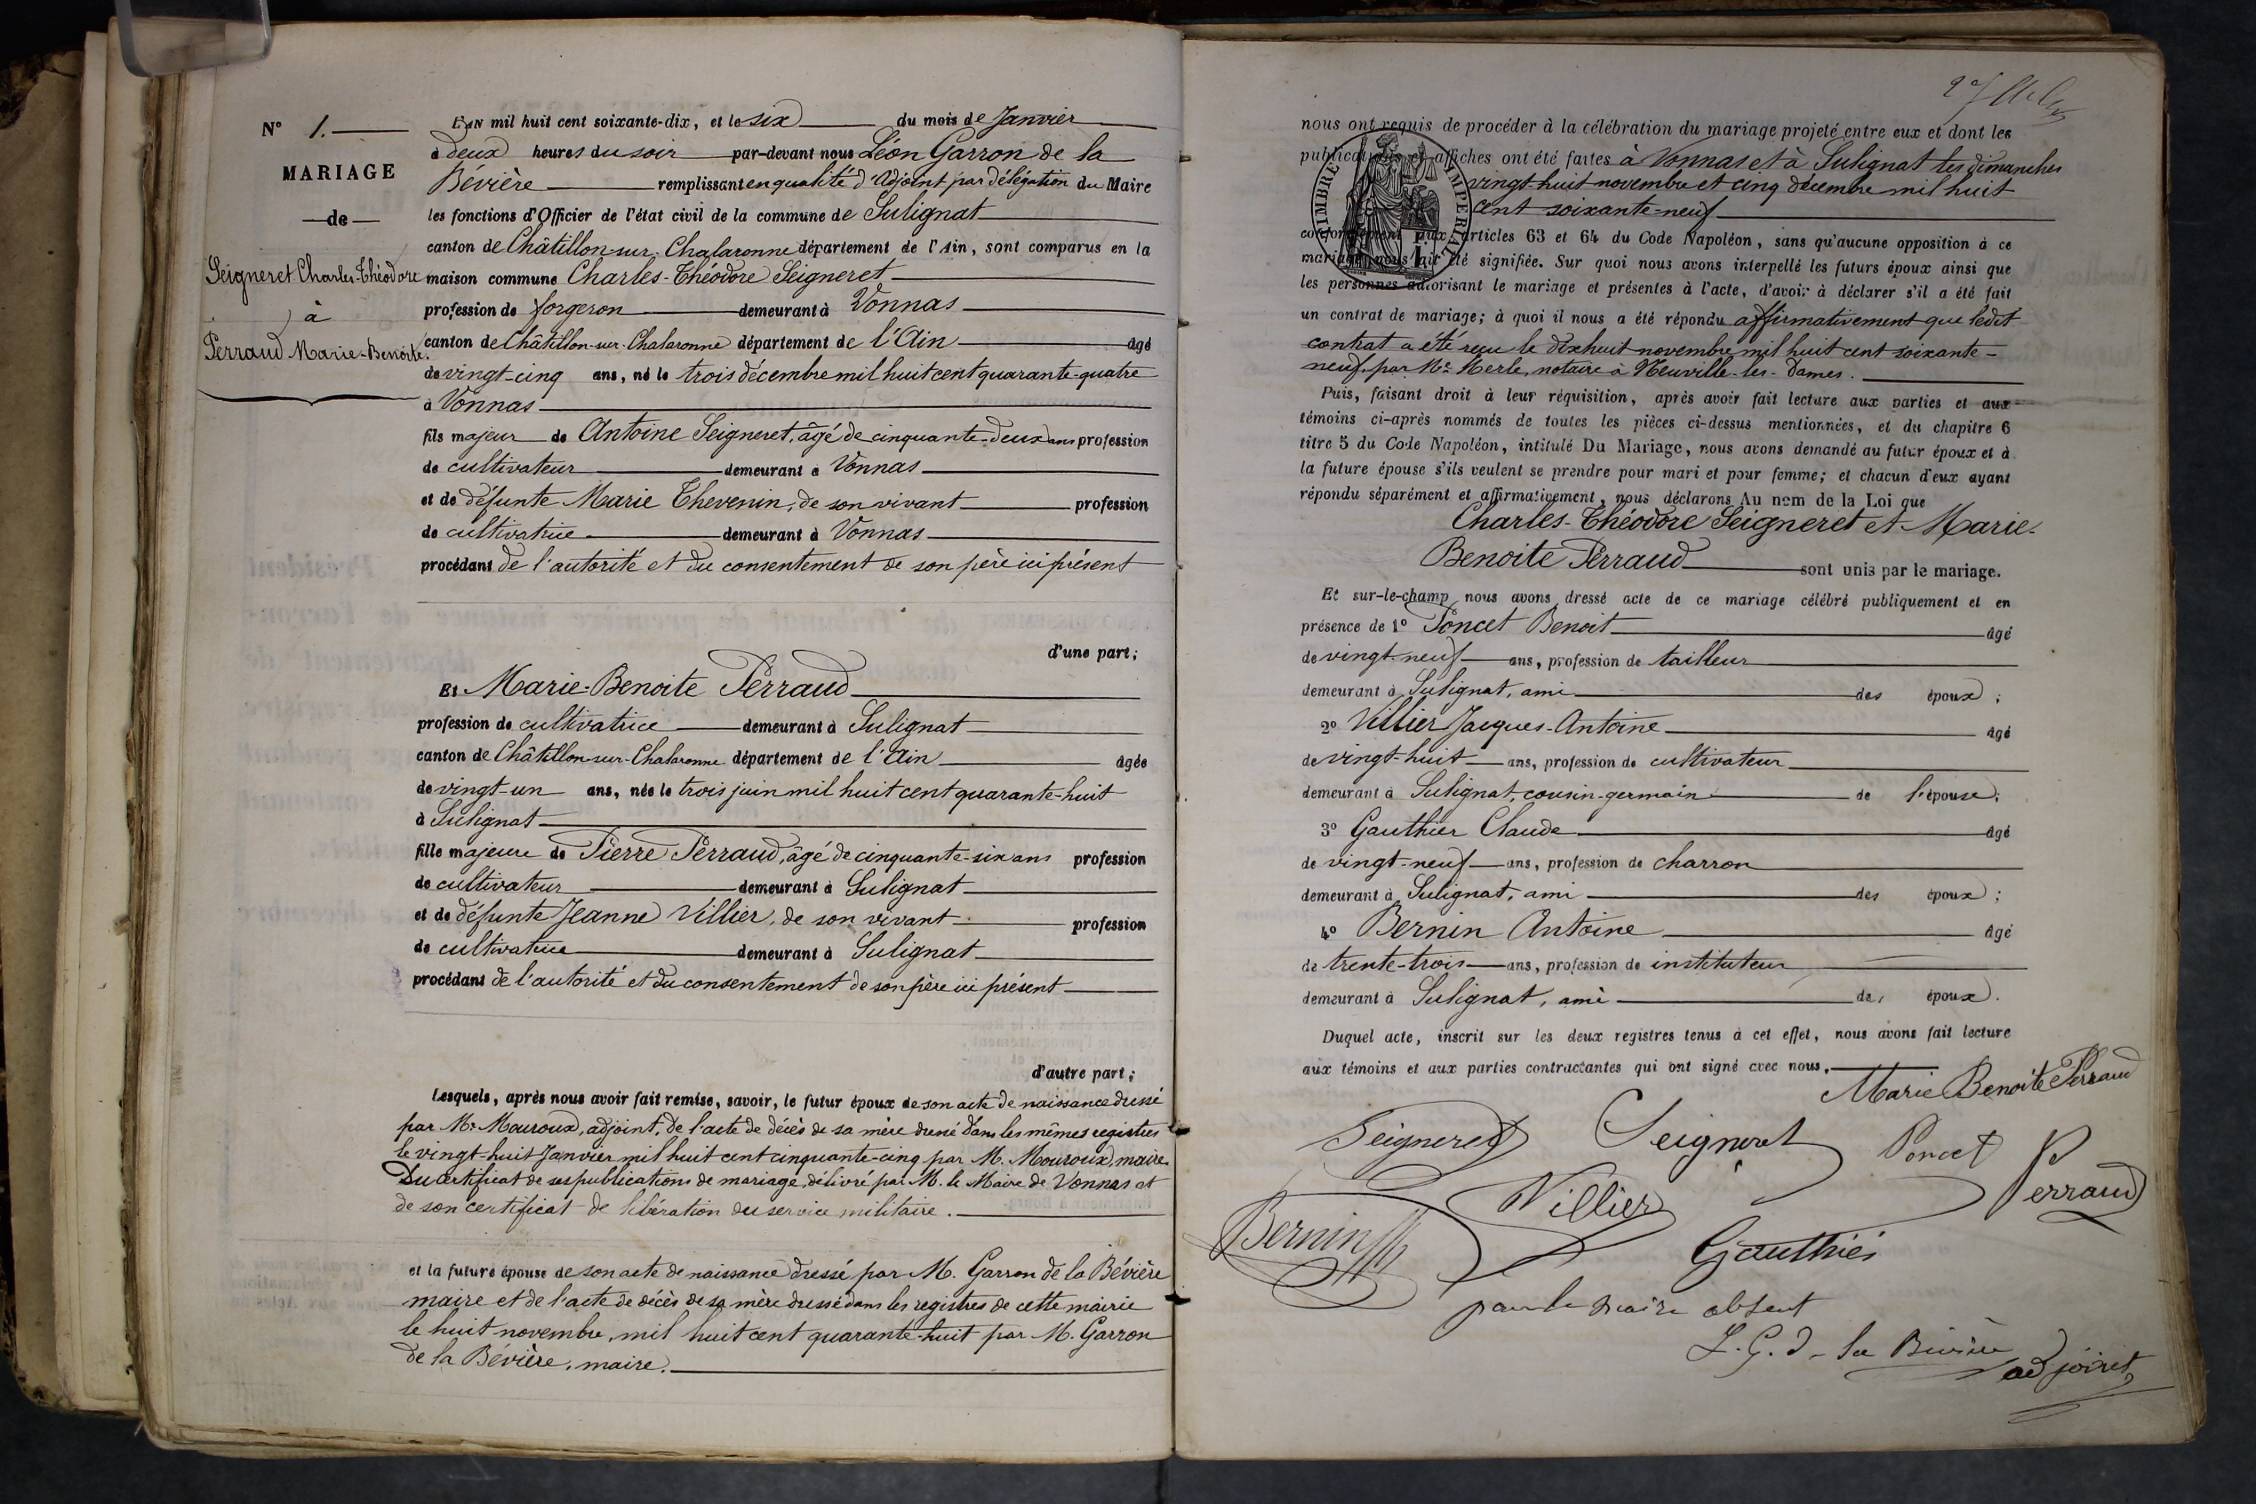 N° 1.
MARIAGE
de
Seigneret Charles-Théodore
à
Perraud Marie-Benoite.
L'AN mil huit cent soixante-dix, et le six du mois de Janvier
à deux heures du soir par-devant nous Léon Garron de la
Bévière remplissant en qualité d'Adjoint par délégation du Maire
les fonctions d'Officier de l'état civil de la commune de Sulignat
canton de Châtillon-sur-Chalaronne département de l'Ain, sont comparus en la
maison commune Charles-Théodore Seigneret
profession de forgeron demeurant à Vonnas
canton de Châtillon-sur-Chalaronne département de l'Ain âgé
de vingt-cinq ans, né le trois décembre mil huit cent quarante-quatre
à Vonnas
fils majeur de Antoine Seigneret, âgé de cinquante-deux ans profession
de cultivateur demeurant à Vonnas
et de défunte Marie Thevenin, de son vivant profession
de cultivatrice demeurant à Vonnas
procédant de l'autorité et du consentement de son père ici présent
d'une part;
Et Marie-Benoite Perraud
profession de cultivatrice demeurant à Sulignat
canton de Châtillon-sur-Chalaronne département de l'Ain âgée
de vingt-un ans, née le trois juin mil huit cent quarante-huit
à Sulignat
fille majeure de Pierre Perraud, âgé de cinquante-six ans profession
de cultivateur demeurant à Sulignat
et de défunte Jeanne Villier, de son vivant profession
de cultivatrice demeurant à Sulignat
procédant de l'autorité et du consentement de son père ici présent
d'autre part;
Lesquels, après nous avoir fait remise, savoir, le futur époux de son acte de naissance dressé
par Mr Mouroux, adjoint, de l'acte de décès de sa mère dressé dans les mêmes registres
le vingt-huit Janvier mil huit cent cinquante-cinq par M. Mouroux, maire.
Du certificat de ses publications de mariage, délivré par M. le Maire de Vonnas et
de son certificat de libération du service militaire.
et la future épouse de son acte de naissance dressé par M. Garron de la Bévière
maire et de l'acte de décès de sa mère dressé dans les registres de cette mairie
le huit novembre, mil huit cent quarante-huit par M. Garron
de la Bévière, maire.
nous ont requis de procéder à la célébration du mariage projeté entre eux et dont les
publications et affiches ont été faites à Vonnas et à Sulignat les dimanches
vingt-huit novembre et cinq décembre mil huit
cent soixante-neuf
TIMBRE IMPERIAL
conformément aux articles 63 et 64 du Code Napoléon, sans qu'aucune opposition à ce
mariage nous ait été signifiée. Sur quoi nous avons interpellé les futurs époux ainsi que
les personnes autorisant le mariage et présentes à l'acte, d'avoir à déclarer s'il a été fait
un contrat de mariage; à quoi il nous a été répondu affirmativement que ledit
contrat a été reçu le dix huit novembre mil huit cent soixante-
neuf, par Mr Merle, notaire à Neuville-les-Dames.
Puis, faisant droit à leur réquisition, après avoir fait lecture aux parties et aux
témoins ci-après nommés de toutes les pièces ci-dessus mentionnées, et du chapitre 6
titre 5 du Code Napoléon, intitulé Du Mariage, nous avons demandé au futur époux et à
la future épouse s'ils veulent se prendre pour mari et pour femme; et chacun d'eux ayant
répondu séparément et affirmativement, nous déclarons Au nom de la Loi que
Charles-Théodore Seigneret et Marie-
Benoite Perraud sont unis par le mariage.
Et sur-le-champ nous avons dressé acte de ce mariage célébré publiquement et en
présence de 1° Poncet Benoit âgé
de vingt-neuf ans, profession de tailleur
demeurant à Sulignat, ami des époux;
2° Villier Jacques-Antoine âgé
de vingt-huit ans, profession de cultivateur
demeurant à Sulignat, cousin-germain de l'épouse;
3° Gauthier Claude âgé
de vingt-neuf ans, profession de charron
demeurant à Sulignat, ami des époux;
4° Bernin Antoine âgé
de trente-trois ans, profession de instituteur
demeurant à Sulignat, ami des époux.
Duquel acte, inscrit sur les deux registres tenus à cet effet, nous avons fait lecture
aux témoins et aux parties contractantes qui ont signé avec nous.
Marie Benoite Perraud
Seigneret Seigneret Poncet Perraud
Bernin Villier
Gauthier
pour le maire absent
L. G. d. la Bévière
adjoint